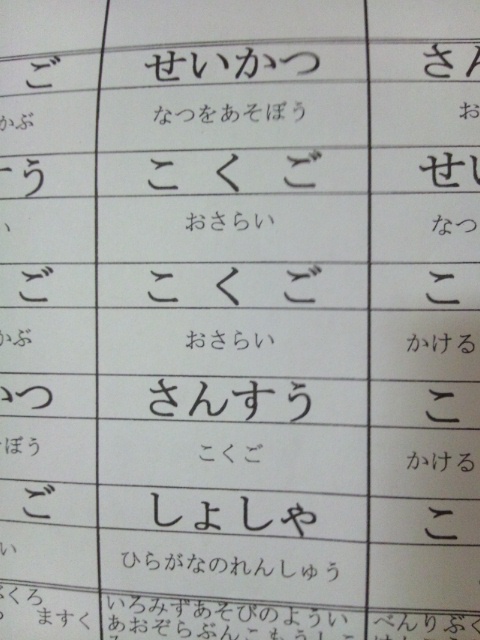 ご
かぶ
すう
い
ご
かぶ
かつ
ぼう
ご
い
ぶくろ
ますく
せいかつ
なつをあそぼう
こくご
おさらい
こくご
おさらい
さんすう
こくご
しょしゃ
ひらがなのれんしゅう
いろみずあそびのようい
あおぞらぶんこもうしこ
さん
お
せい
なつ
こ
かける
こ
かける
こ
べんりぶく